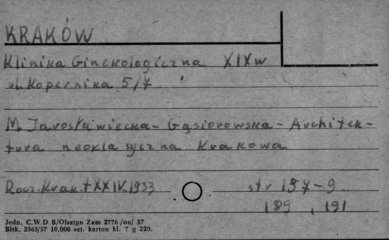 KRAKÓW
Klinika Ginekologiczna XIXw
ul. Kopernika 5/7
M. Jarosławiecka-Gąsiorowska - Architek-
tura neoklasyczna Krakowa
Rocz. Krak. t XXIV. 1933 str 187-9
189, 191
Jedn. C.W D B/Olsztyn Zam 2776 /on/ 57
Bltk. 2563/57 10.000 szt. karton kl. 7 g 220.